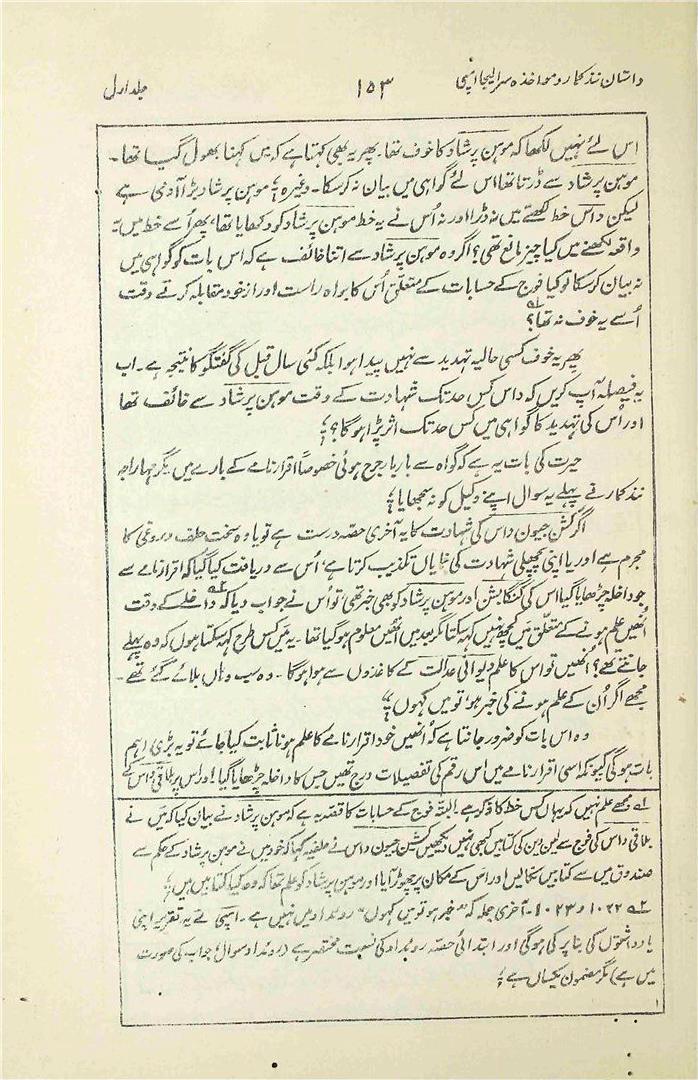 داستان نند کمار و مواخذہ سر الیجا امپی ۱۵۳ جلد اول
اس لئے نہیں لکھا کہ موہن پرشاد کا خوف تھا۔ پھر یہ بھی کہتا ہے کہ میں کہنا بھول گیا تھا۔
موہن پرشاد سے ڈرتا تھا اس لئے گواہی میں بیان نہ کر سکا۔ وغیرہ؛ موہن پرشاد بڑا آدمی ہے
لیکن داس خط لکھتے میں نہ ڈرا اور نہ اُس نے یہ خط موہن پرشاد کو دکھایا تھا، پھر اُسے خط میں یہ
واقعہ لکھنے میں کیا چیز مانع تھی؟ اگر وہ موہن پرشاد سے اتنا خائف ہے کہ اس بات کو گواہی میں
نہ بیان کر سکا تو کیا فوج کے حسابات کے متعلق اُس کا براہ راست اور از خود مقابلہ کرتے وقت
اُسے یہ خوف نہ تھا؟ لہ
پھر یہ خوف کسی حالیہ تہدید سے نہیں پیدا ہوا بلکہ کئی سال قبل کی گفتگو کا نتیجہ ہے۔ اب
یہ فیصلہ آپ کریں کہ داس کس حد تک شہادت کے وقت موہن پرشاد سے خائف تھا
اور اُس کی تہدید کا گواہی میں کس حد تک اثر پڑا ہوگا؟؛
حیرت کی بات یہ ہے کہ گواہ سے بار بار جرح ہوئی خصوصاً اقرار نامے کے بارے میں مگر مہاراجہ
نند کمار نے پہلے یہ سوال اپنے وکیل کو نہ سجھایا؛
اگر کشن جیون داس کی شہادت کا یہ آخری حصہ درست ہے تو یا وہ سخت حلف دروغی کا
مجرم ہے اور یا اپنی پچھلی شہادت کی نمایاں تکذیب کرتا ہے، اُس سے دریافت کیا گیا کہ اقرار نامے سے
جو داخلہ چڑھایا گیا اس کی گنگا بشن اور موہن پرشاد کو بھی خبر تھی؟ تو اُس نے جواب دیا کہ ۲ داخلے کے وقت
اُنھیں علم ہونے کے متعلق میں کچھ نہیں کہہ سکتا مگر بعد میں اُنھیں معلوم ہو گیا تھا۔ یہ میں کس طرح کہہ سکتا ہوں کہ وہ پہلے
جانتے تھے؟ اُنھیں تو اس کا علم دیوانی عدالت کے کاغذوں سے ہوا ہوگا۔ وہ سب وہاں بلائے گئے تھے۔
مجھے اگر اُن کے علم ہونے کی خبر ہو، تو میں کہوں؛
وہ اس بات کو ضرور جانتا ہے کہ اُنھیں خود اقرار نامے کا علم ہونا ثابت کیا جائے تو یہ بڑی اہم
بات ہوگی کیونکہ اسی اقرار نامے میں اُس رقم کی تفصیلات درج تھیں جس کا داخلہ چڑھایا گیا! اور اس پر بلاقی داس کے
لہ مجھے علم نہیں کہ یہاں کس خط کا ذکر ہے۔ البتہ فوج کے حسابات کا قصہ یہ ہے کہ موہن پرشاد نے بیان کیا کہ میں نے
بلاقی داس کی فوج سے لین دین کی کتابیں کبھی نہیں دیکھیں کشن جیون داس نے حلفیہ کہا کہ خود میں نے موہن پرشاد کے حکم سے
صندوق میں سے کتابیں نکالیں اور اس کے مکان پر چھوڑ آیا اور موہن پرشاد کو علم تھا کہ وہ کیا کتابیں ہیں؛
۲ ۱۰۲۲ و ۱۰۲۳۔ آخری جملہ کہ "خبر ہو تو میں کہوں" روئداد میں نہیں ہے۔ امپی نے یہ تقریر اپنی
یادداشتوں کی بنا پر کی ہوگی اور ابتدائی حصہ روئداد کی نسبت مختصر ہے (روئداد سوال جواب کی صورت
میں ہے) مگر مضمون یکساں ہے؛